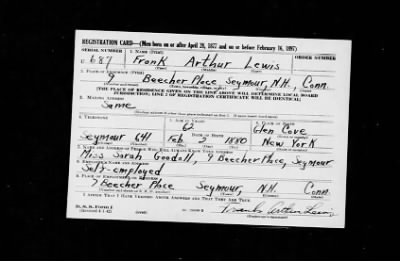 REGISTRATION CARD—(Men born on or after April 28, 1877 and on or before February 16, 1897)
SERIAL NUMBER 1. NAME (Print) ORDER NUMBER
U 687 Frank Arthur Lewis
2. PLACE OF RESIDENCE (Print)
9 Beecher Place Seymour, N.H. Conn.
[THE PLACE OF RESIDENCE GIVEN ON THE LINE ABOVE WILL DETERMINE LOCAL BOARD
JURISDICTION; LINE 2 OF REGISTRATION CERTIFICATE WILL BE IDENTICAL]
3. MAILING ADDRESS
Same
4. TELEPHONE 5. AGE IN YEARS 6. PLACE OF BIRTH
62 Glen Cove
DATE OF BIRTH
Seymour 641 Feb 2 1880 New York
7. NAME AND ADDRESS OF PERSON WHO WILL ALWAYS KNOW YOUR ADDRESS
Miss Sarah Goodall, 9 Beecher Place, Seymour
8. EMPLOYER'S NAME AND ADDRESS
Self-employed
9. PLACE OF EMPLOYMENT OR BUSINESS
7 Beecher Place Seymour, N.H. Conn.
I AFFIRM THAT I HAVE VERIFIED ABOVE ANSWERS AND THAT THEY ARE TRUE.
D. S. S. Form 1
Frank Arthur Lewis